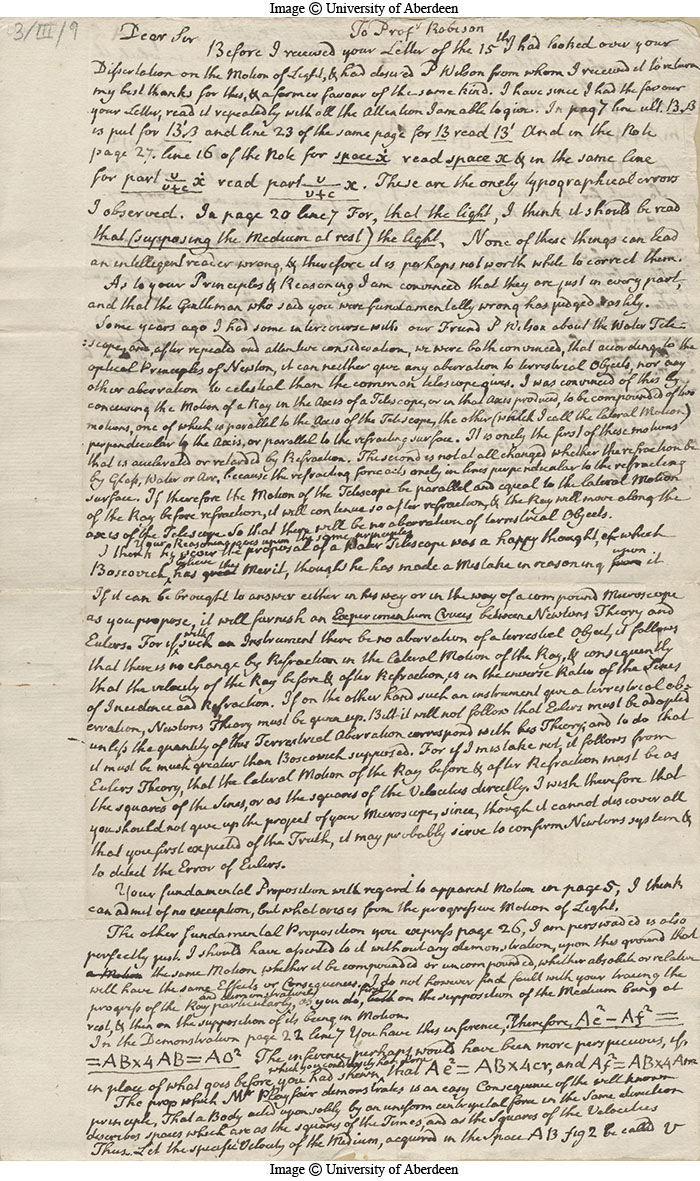 Image © University of Aberdeen
3/III/9
To Profr Robison
Dear Sir
Before I received your Letter of the 15th I had looked over your
Dissertation on the Motion of Light, & had desired P Wilson from whom I received it to return
my best thanks for this, & a former favour of the same kind. I have since I had the favour
your Letter, read it repeatedly with all the Attention I am able to give. In pag 7 line ult. 13,β
is put for 13'β and line 23 of the same page for 13 read 13' And in the Note
page 27. line 16 of the Note for space ẋ read space x & in the same line
for part v/v+c ẋ read part v/v+c x. These are the onely typographical errors
I observed. In page 20 line 7 For, that the light, I think it should be read
that (supposing the Medium at rest) the light, None of these things can lead
an intelligent reader wrong, & therefore it is perhaps not worth while to correct them.
As to your Principles & Reasoning I am convinced that they are just in every part,
and that the Gentleman who said you were fundamentally wrong has judged rashly.
Some years ago I had some intercourse with our Friend P Wilson about the Water Tele-
:scope, and, after repeated and attentive consideration, we were both convinced, that according to the
optical Principles of Newton, it can neither give any abberation to terrestrial Objects, nor any
other aberration to celestial than the common telescope gives. I was convinced of this by
conceiving the Motion of a Ray in the Axis of a Telescope, or in that Axis produced, to be compounded of two
motions, one of which is parallel to the Axis of the Telescope, the other (which I call the lateral Motion)
perpendicular to the Axis, or parallel to the refracting surface. It is onely the first of these motions
that is accelerated or retarded by Refraction. The second is not at all changed whether the refraction be
by Glass, Water or Air, because the refracting force acts onely in lines perpendicular to the refracting
surface. If therefore the Motion of the Telescope be parallel and equal to the lateral Motion
of the Ray before refraction, it will continue so after refraction, & the Ray will move along the
axis of the Telescope So that there will be no aberration of terrestrial Objects.
Your Reasoning goes upon the same principles
I think the proposal of a Water Telescope was a happy thought, of which
Boscovich, I believe has great Merit, though he has made a Mistake in reasoning from upon it
If it can be brought to answer either in his way or in the way of a compound Microscope
as you propose, it will furnish an Experimentum Crucis between Newtons Theory and
Eulers. For if with such an Instrument there be no aberration of a terrestrial Object, it follows
that there is no change by Refraction in the lateral Motion of the Ray, & consequently
that the velocity of the Ray before & after Refraction, is in the inverse Ratio of the Sines
of Incidence and Refraction. If on the other hand such an instrument give a terrestrial ab-
erration, Newtons Theory must be given up. But it will not follow that Eulers must be adopted
unless the quantity of this Terrestrial Aberration correspond with his Theory; and to do that
it must be much greater than Boscovich supposed. For if I mistake not, it follows from
Eulers Theory, that the lateral Motion of the Ray before & after Refraction must be as
the squares of the Sines, or as the squares of the Velocities directly. I wish therefore that
you should not give up the project of your Microscope, since, though it cannot discover all
that you first expected of the Truth, it may probably serve to confirm Newtons system &
to detect the Error of Eulers.
Your fundamental Proposition with regard to apparent Motion in page 5, I think
can admit of no exception, but what arises from the progressive Motion of Light.
The other fundamental Proposition you express page 26, I am perswaded is also
perfectly just. I should have assented to it without any demonstration, upon this ground that
a Motion the same Motion whether it be compounded or uncompounded, whether absolute or relative
will have the same Effects or Consequences. I do not however find fault with your tracing the
progress of the Ray particularly, and demonstratively as you do, first on the supposition of the Medium being at
rest, & then on the supposition of its being in Motion.
In the Demonstration page 22 line 7 You have this inference, Therefore, Ae² – Af² =
= AB×4AB = AO² The inference perhaps would have been more perspicuous, if
in place of what goes before, you had shewn that Ae² = AB×4cr, and Af² = AB×4Am
The prop which Mr Playfair demonstrates is an easy Consequence of the well known
principle, That a Body acted upon solely by an uniform centripetal force in the same direction
describes spaces which are as the squares of the Times, and as the Squares of the Velocities
Thus. Let the specific Velocity of the Medium, acquired in the Space AB fig 2 be called v
Image © University of Aberdeen